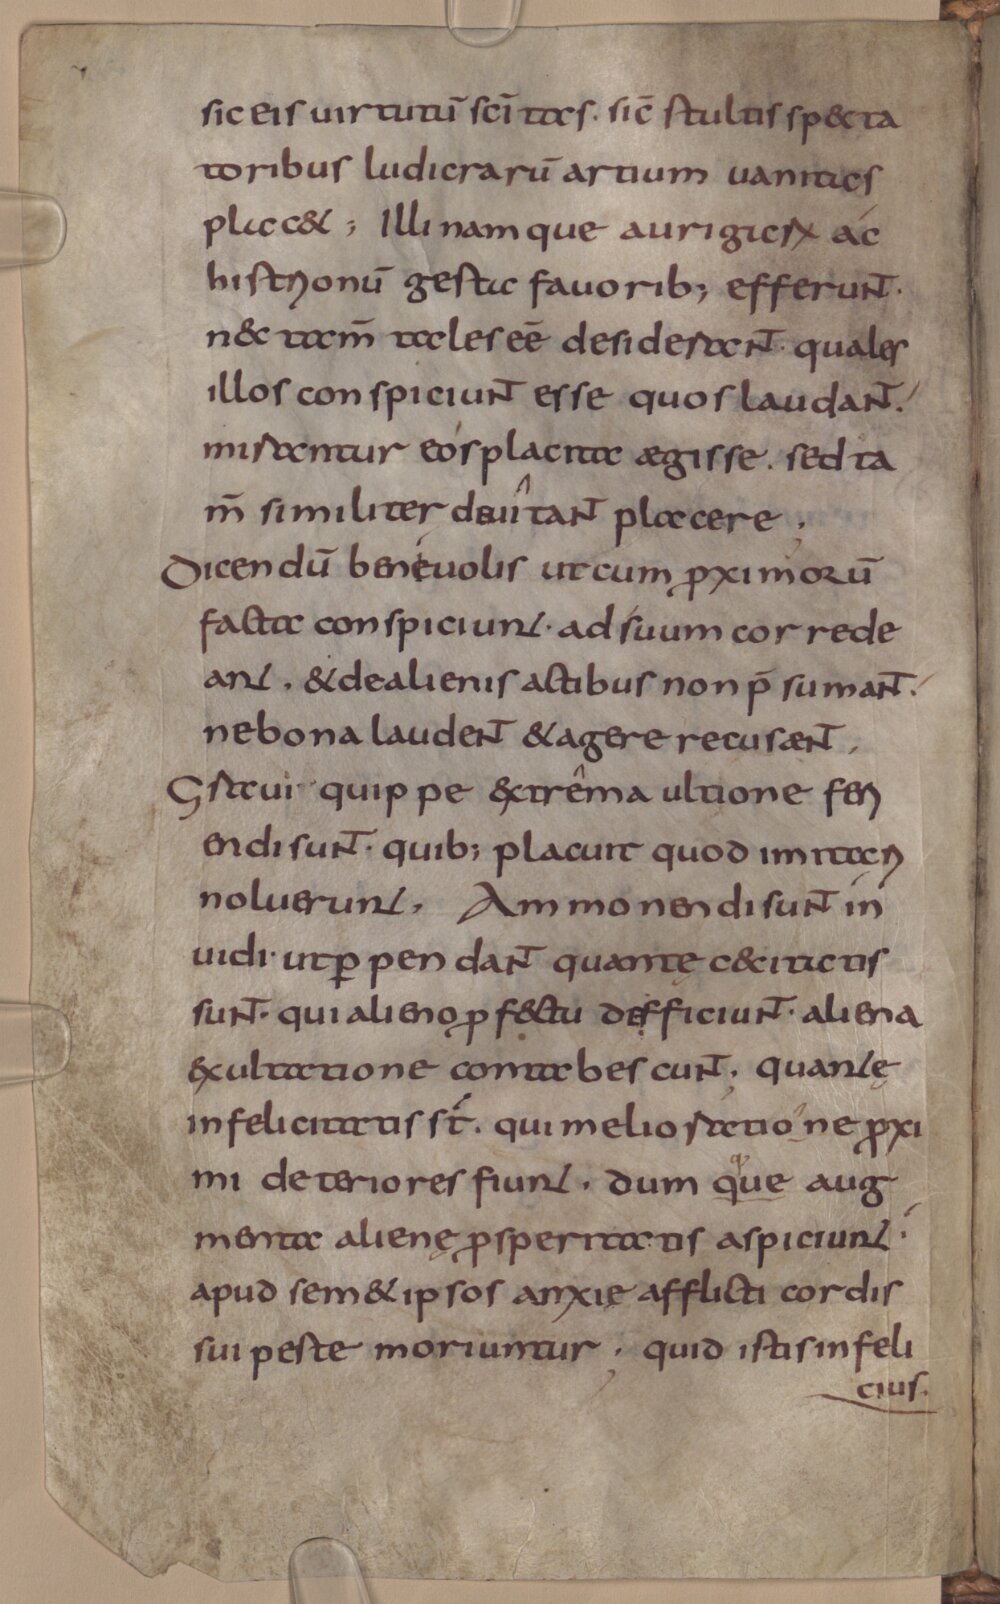 sic eis uirtutū scītas. sic̄ stultis specta
toribus ludicrarū artium uanitas
placet; Illi namque aurigarū ac
histrionū gesta fauorib; efferunt.
nec tam̄ tales eē desiderant. quales
illos conspiciunt esse quos laudant.
mirantur eos placita ęgisse. sed ta
m̄ similiter deuitant placere.
Dicendū beneuolis ut cum ꝓximorū
facta conspiciunt. ad suum cor rede
ant. & de alienis actibus non p̄sumant.
ne bona laudent & agere recusænt.
Graui quippe extrema ultione feri
endi sunt. quib; placuit quod imitari
noluerunt. Ammonendi sunt in
uidi. ut ꝑpendant quantę cecitatis
sunt. qui alieno ꝓfectu defficiunt. aliena
exultatione contabescunt. quantę
infelicitatis st̄. qui melioratione ꝓxi
mi deteriores fiunt. dum que aug
menta alienę ꝓsperitatis aspiciunt.
apud semetipsos anxie afflicti cordis
sui peste moriuntur. quid istis infeli
cius.